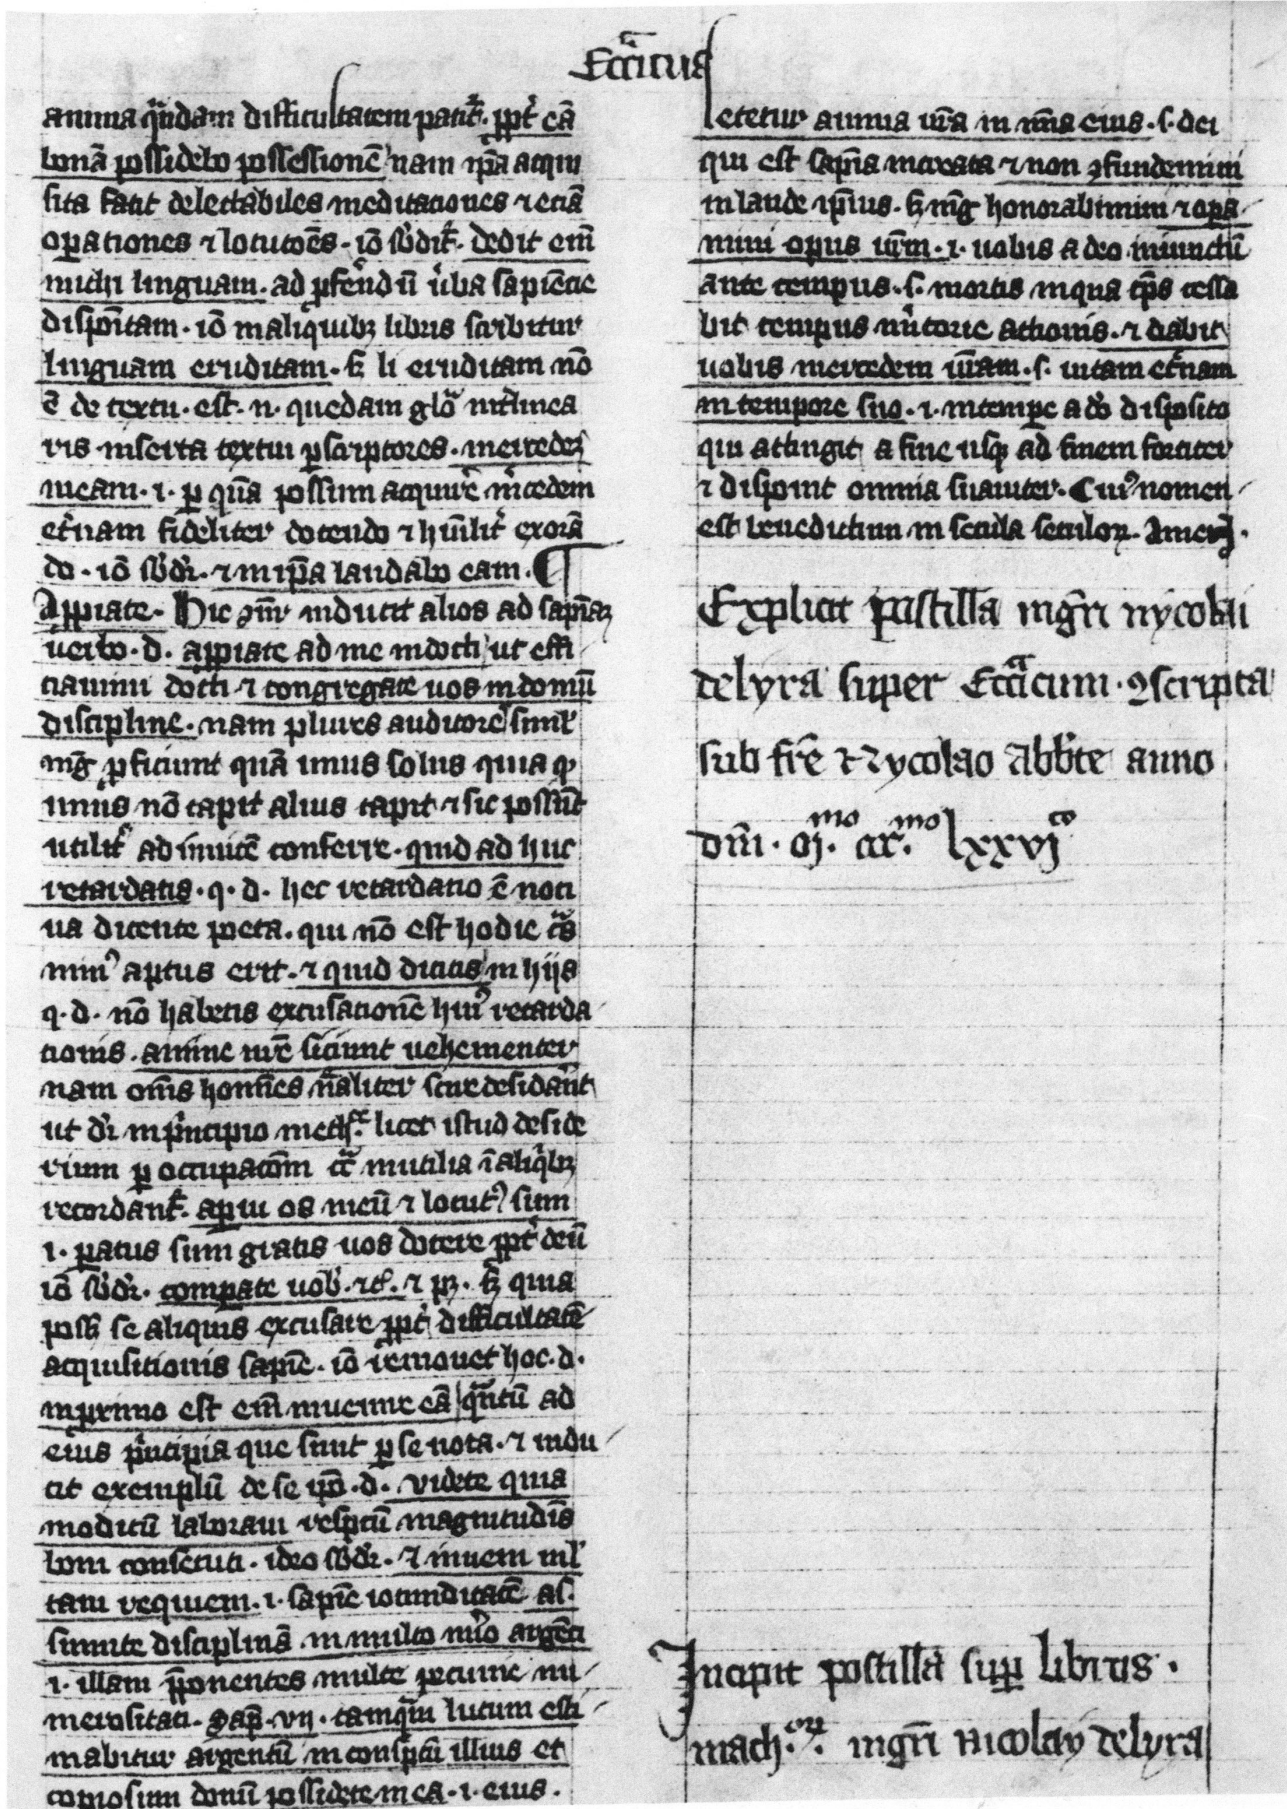 Eccͣiticus
anima qͣndam difficultatem patit᷑. ꝓpt᷑ eā
bonā possidebo possessionē nam ip̄a acqui
sita facit delectabiles meditaciones ⁊ eciā
oꝑationes ⁊ locutōes. iō sb̓dit᷑. dedit em̄
michi linguam. ad ꝓferendū v̓ba sapiencie
disponitam. iō in aliquibꝫ libris scribitur
linguam eruditam. sꝫ li eruditam nō
ē de textu. est. n. quedam glō int̓linea
ris inserta textui ꝑ scriptores. mercedeꝫ
meam. i. ꝑ quā possum acquire᷑ m̓cedem
et̓nam fideliter docendo ⁊ hūilit᷑ exorā
do. iō sb̓dr̄. ⁊ in ip̄a laudabo eam. ¶
Appiate. Hic ꝯn̄r inducit alios ad sapīaꝫ
verbo. d. appiate ad me indocti ut effi
ciamini docti ⁊ congregate uos in domū
discipline. nam plures auditores simul
mḡ ꝓficiunt quā unus solus quia qꝫ
unus nō capit alius capit ⁊ sic possunt
utilit᷑ ad inuicē conferre. quid ad huc
retardatis. q. d. hec retardatio ē noci
ua dicente poeta. qui nō est hodie cͣs
minꝰ aptus erit. ⁊ quid dicitis in hijs
q. d. nō habetis excusationē huiꝰ retarda
tionis. anime ur̄e siciunt vehementer
nam om̄s homīes nͣaliter scire desidāt
ut dr̄ in p̓ncipio metħ. licet istud deside
rium ꝑ occupacōm cͣ inutilia ī aliqͥbꝫ
recordant᷑. aperui os meū ⁊ locutꝰ sum
i. ꝑatus sum gratis uos docere ꝓpt᷑ deū
iō sb̓dr̄. compate uob̓. ⁊c̄. ⁊ pꝫ. sꝫ quia
posꝫ se aliquis excusare ꝓpt᷑ difficultatē
acquisitionis sapīe. iō remouet hoc. d.
in proximo est em̄ inuenire eā qͣntū ad
eius p̓ncipia que sunt ꝑ se nota. ⁊ indu
cit exemplū de se ip̄o. d. videte quia
modicū laboraui respectū magnitudīs
boni consecuti. ideo sb̓dr̄. ⁊ inueni ml̓
tam requiem. i. sapīe iocunditatē as.
sumite disciplinā in multo nūo argēti
i. illam p̄ponentes multe pecunie nu
merositati. Sap̄. vij. tamqͣm lutum esti
mabitur argentū in conspc̄u illius et
copiosum donū possidete in ea. i. eius.
letetur anima ur̄a in mīa eius. s. dei
qui est sapīa increata ⁊ non ꝯfundemini
in laude ip̄ius. sꝫ mḡ honorabimini ⁊ oꝑa
mini opus ur̄m. i. uobis a deo iniunctū
ante tempus. s. mortis in qua tp̄s cessa
bit tempus m̓itorie actionis. ⁊ dabit
uobis mercedem ur̄am. s. uitam et̓nam
in tempore suo. i. in tempe a dō disposito
qui attingit a fine usqꝫ ad finem fortiter
⁊ disponit omnia suauiter. Cuiꝰ nomen
est benedictum in secula seculoꝝ. Amen.
Explicit postilla mgr̄i nycolai
delyra super Eccͣicum. ꝯscripta
sub fr̄e Nycolao abb̓te anno
dn̄i. mͦ. cccͫͦ. lxxvjͨͦ
Incipit postilla suꝑ libros.
mach.oꝝ. mgr̄i nicolay delyra